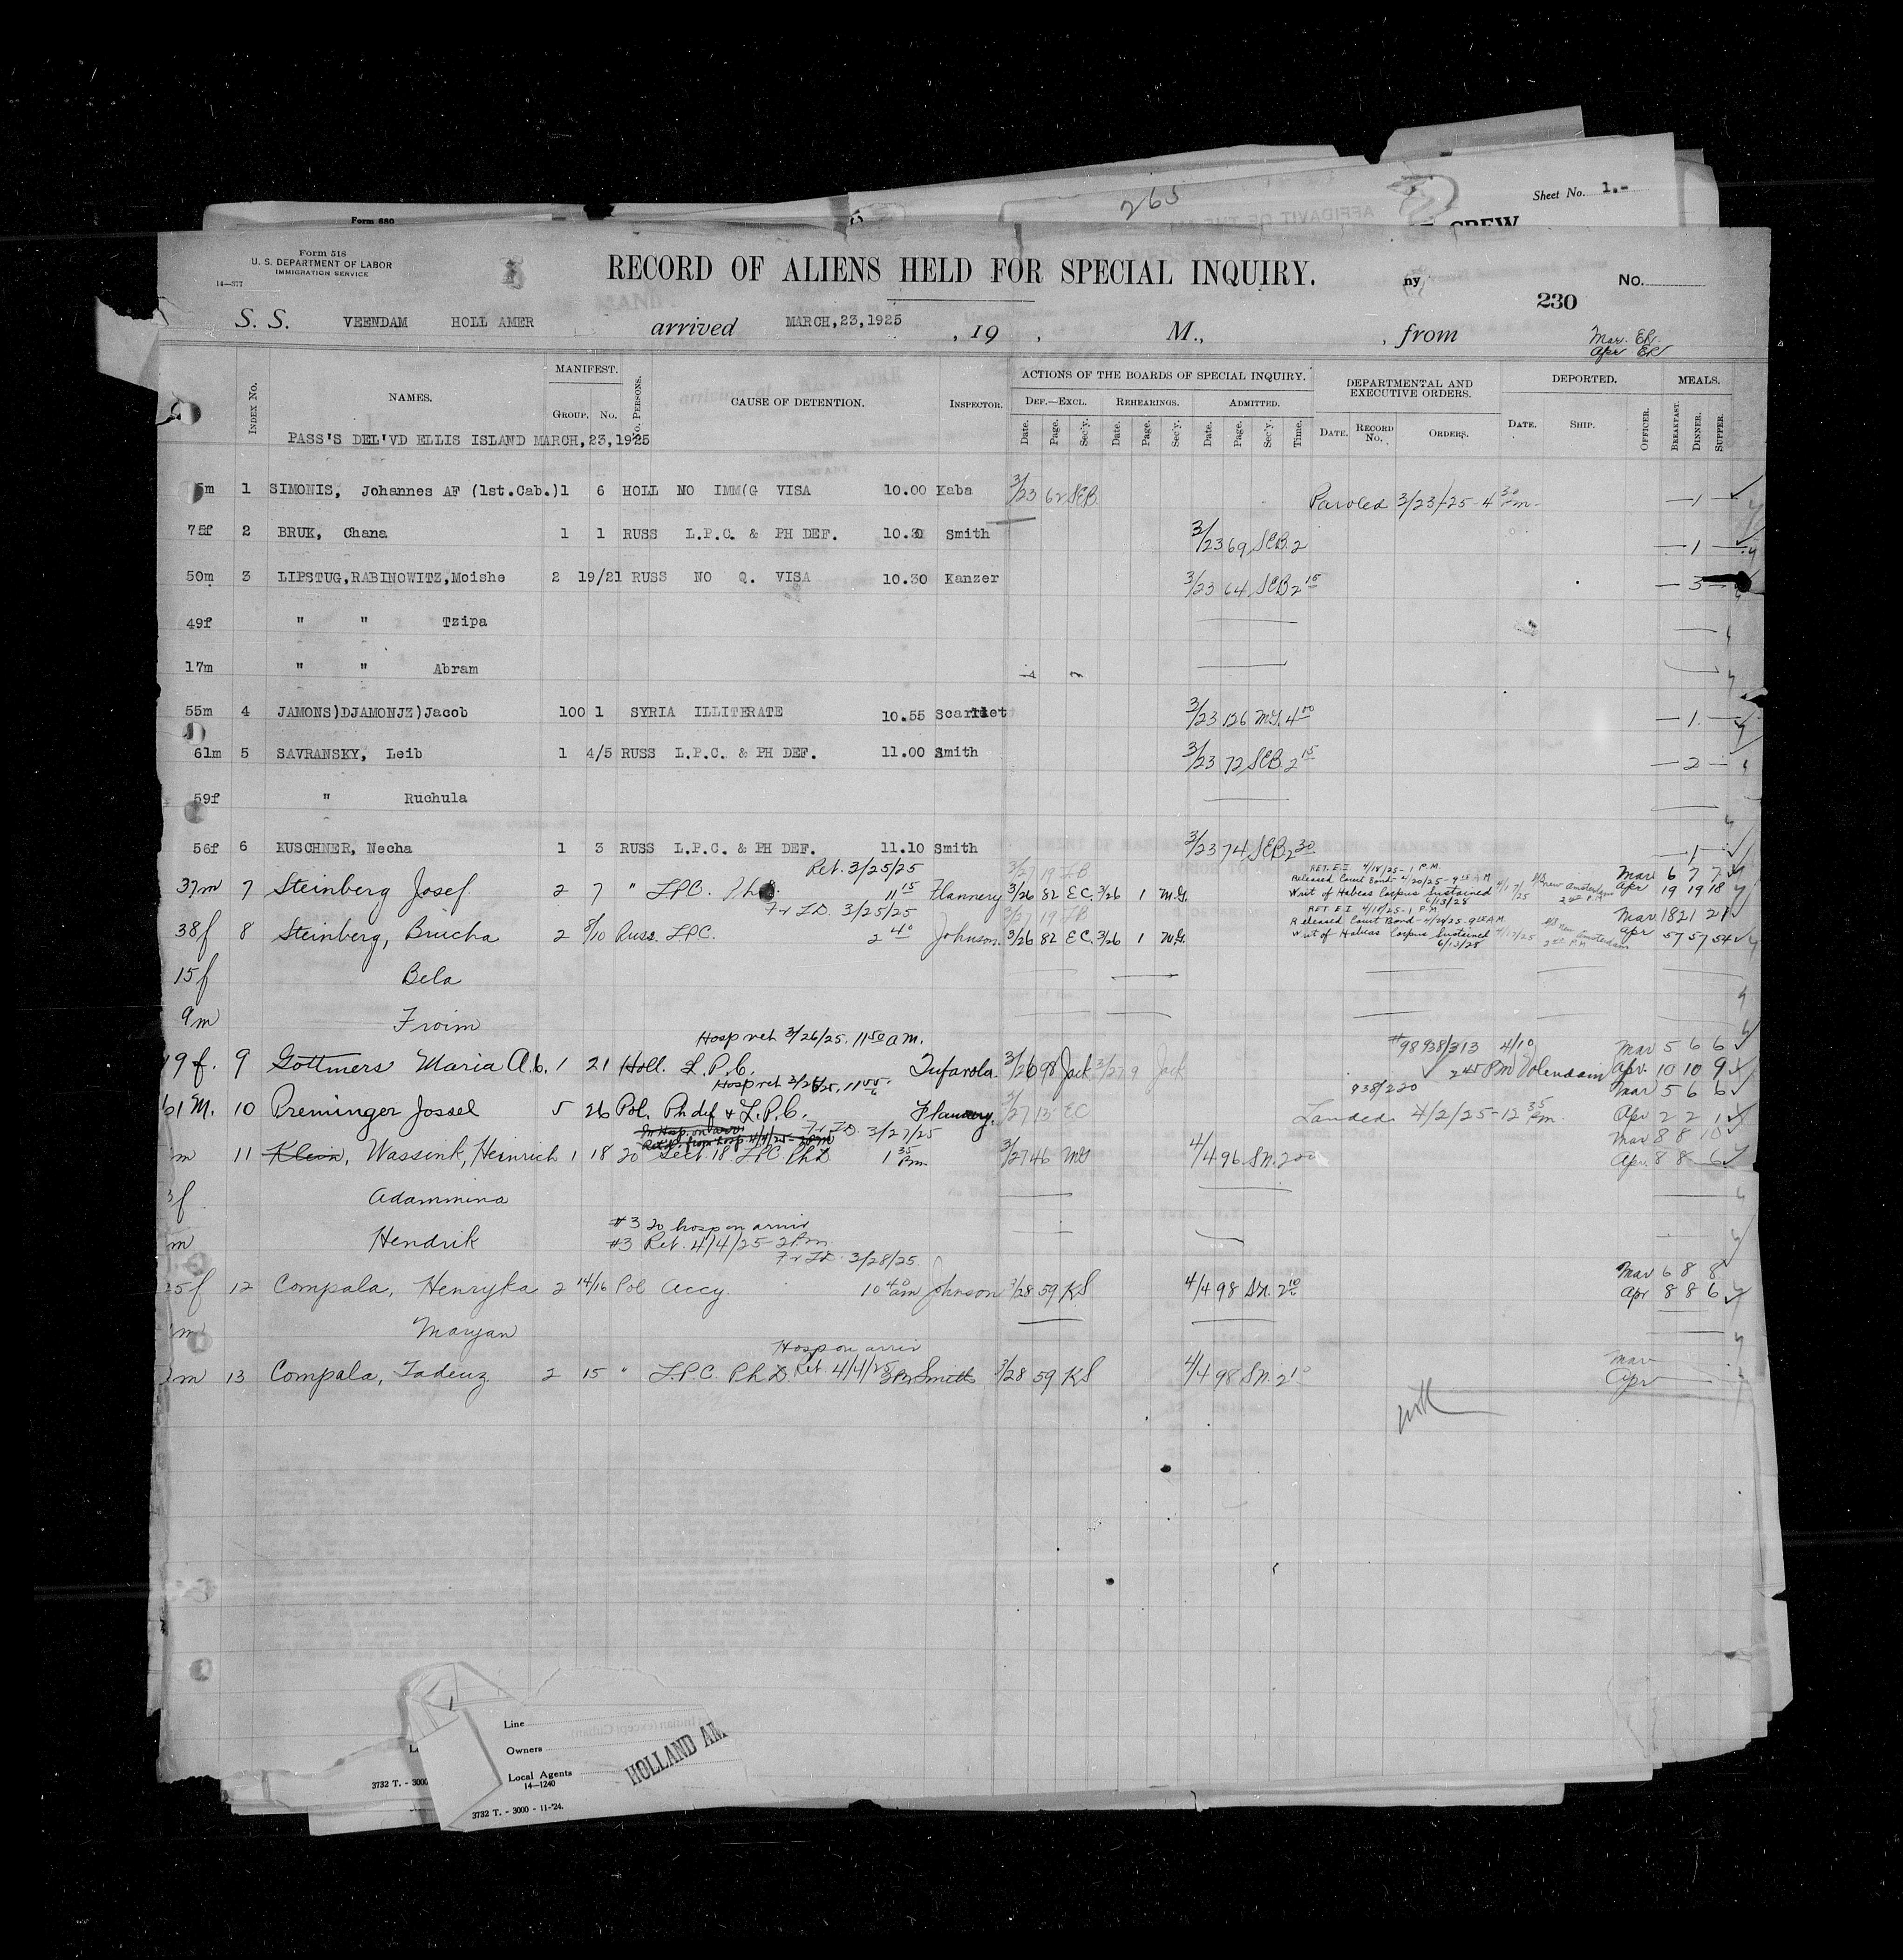 265
Sheet No. 1.-
CREW
Form 680
Form 518
U. S. DEPARTMENT OF LABOR
IMMIGRATION SERVICE
14—377
RECORD OF ALIENS HELD FOR SPECIAL INQUIRY.
ny
No.
230
S. S. VEENDAM HOLL AMER arrived MARCH,23,1925 , 19 , M., , from
Mar. ER.
Apr ER
INDEX NO. NAMES. MANIFEST. GROUP. NO. NO. PERSONS. CAUSE OF DETENTION. INSPECTOR. ACTIONS OF THE BOARDS OF SPECIAL INQUIRY. DEF.—EXCL. REHEARINGS. ADMITTED. DEPARTMENTAL AND EXECUTIVE ORDERS. DEPORTED. MEALS.
Date. Page. Sec'y. Date. Page. Sec'y. Date. Page. Sec'y. Time. DATE. RECORD NO. ORDERS. DATE. SHIP. OFFICER. BREAKFAST. DINNER. SUPPER.
PASS'S DEL'VD ELLIS ISLAND MARCH,23,1925
5m 1 SIMONIS, Johannes AF (1st.Cab.)1 6 HOLL NO IMM(G VISA 10.00 Kaba 3/23 62 SEB Paroled 3/23/25-4 30 pm. 1
75f 2 BRUK, Chana 1 1 RUSS L.P.C. & PH DEF. 10.30 Smith 3/23 69 SEB. 2 1
50m 3 LIPSTUG,RABINOWITZ,Moishe 2 19/21 RUSS NO Q. VISA 10.30 Kanzer 3/23 64 SEB 2 15 3
49f " " Tzipa
17m " " Abram
55m 4 JAMONS)DJAMONJZ)Jacob 100 1 SYRIA ILLITERATE 10.55 Scarlet 3/23 126 M.G. 4 00 1
61m 5 SAVRANSKY, Leib 1 4/5 RUSS L.P.C. & PH DEF. 11.00 Smith 3/23 72 SEB. 2 15 2
59f " Ruchula
56f 6 KUSCHNER, Necha 1 3 RUSS L.P.C. & PH DEF. 11.10 Smith 3/23 74 SEB 2 30 1
Ret. 3/25/25
3/27 19 FB
RET. E.I. 4/18/25-1 P.M.
37m 7 Steinberg Josef 2 7 " LPC. 11 15 Flannery 3/26 82 EC. 3/26 1 M.G. Released Court Bond 4/20/25-9 A.M. Mar 6 7 7
Writ of Habeas Corpus Sustained 6/13/28 4/17/25 New Amsterdam Apr 19 19 18
F r I.D. 3/25/25
3/27 19 FB
RET E.I. 4/18/25-1 P.M.
38f 8 Steinberg, Bricha 2 8/10 Russ. LPC. 2 40 Johnson. 3/26 82 EC. 3/26 1 M.G. Released Court Bond-4/20/25-9 A.M. Mar 18 21 21
Writ of Habeas Corpus Sustained 6/13/28 4/17/25 New Amsterdam Apr 57 57 54
15f Bela
9m Froim
Hosp ret 3/26/25. 11 50 a m.
19f. 9 Gottmers Maria A.b. 1 21 Holl. L.P.C. Tufarola 3/26 98 Jack 3/27 9 Jack #98938/313 4/10 Mar 5 6 6
2 45 PM Volendam Apr. 10 10 9
Hosp ret 3/26/25, 11 55
938/220 Mar 5 6 6
61 M. 10 Preminger Jossel 5 26 Pol. Ph def & L.P.C. Flannery. 3/27 13 EC Landed 4/2/25-12 35 pm. Apr 2 2 1
F r I.D. 3/27/25
Mar 8 8 10
m 11 Klein, Wassink, Heinrich 1 18 20 Sect. 18. LPC. PhD 1 35 Pm 3/27 46 MG 4/4 96 SN. 2 00 Apr. 8 8 6
f Adammina
#3 to hosp on arriv
m Hendrik
#3 Ret. 4/4/25-2 P.m.
F r I.D. 3/28/25
Mar 6 8 8
25f 12 Compala, Henryka 2 14/16 Pol Accy. 10 40 am Johnson 3/28 59 KS 4/4 98 SN. 2 10 Apr 8 8 6
m Maryan
Hosp on arriv
m 13 Compala, Tadeuz 2 15 " L.P.C. Ph.D. Ret 4/4/25 Smith 3/28 59 KS 4/4 98 SN. 2 10 Mar
Apr
Line
Owners
Local Agents
14—1240
HOLLAND AM
3732 T. - 3000
3732 T. - 3000 - 11-'24.